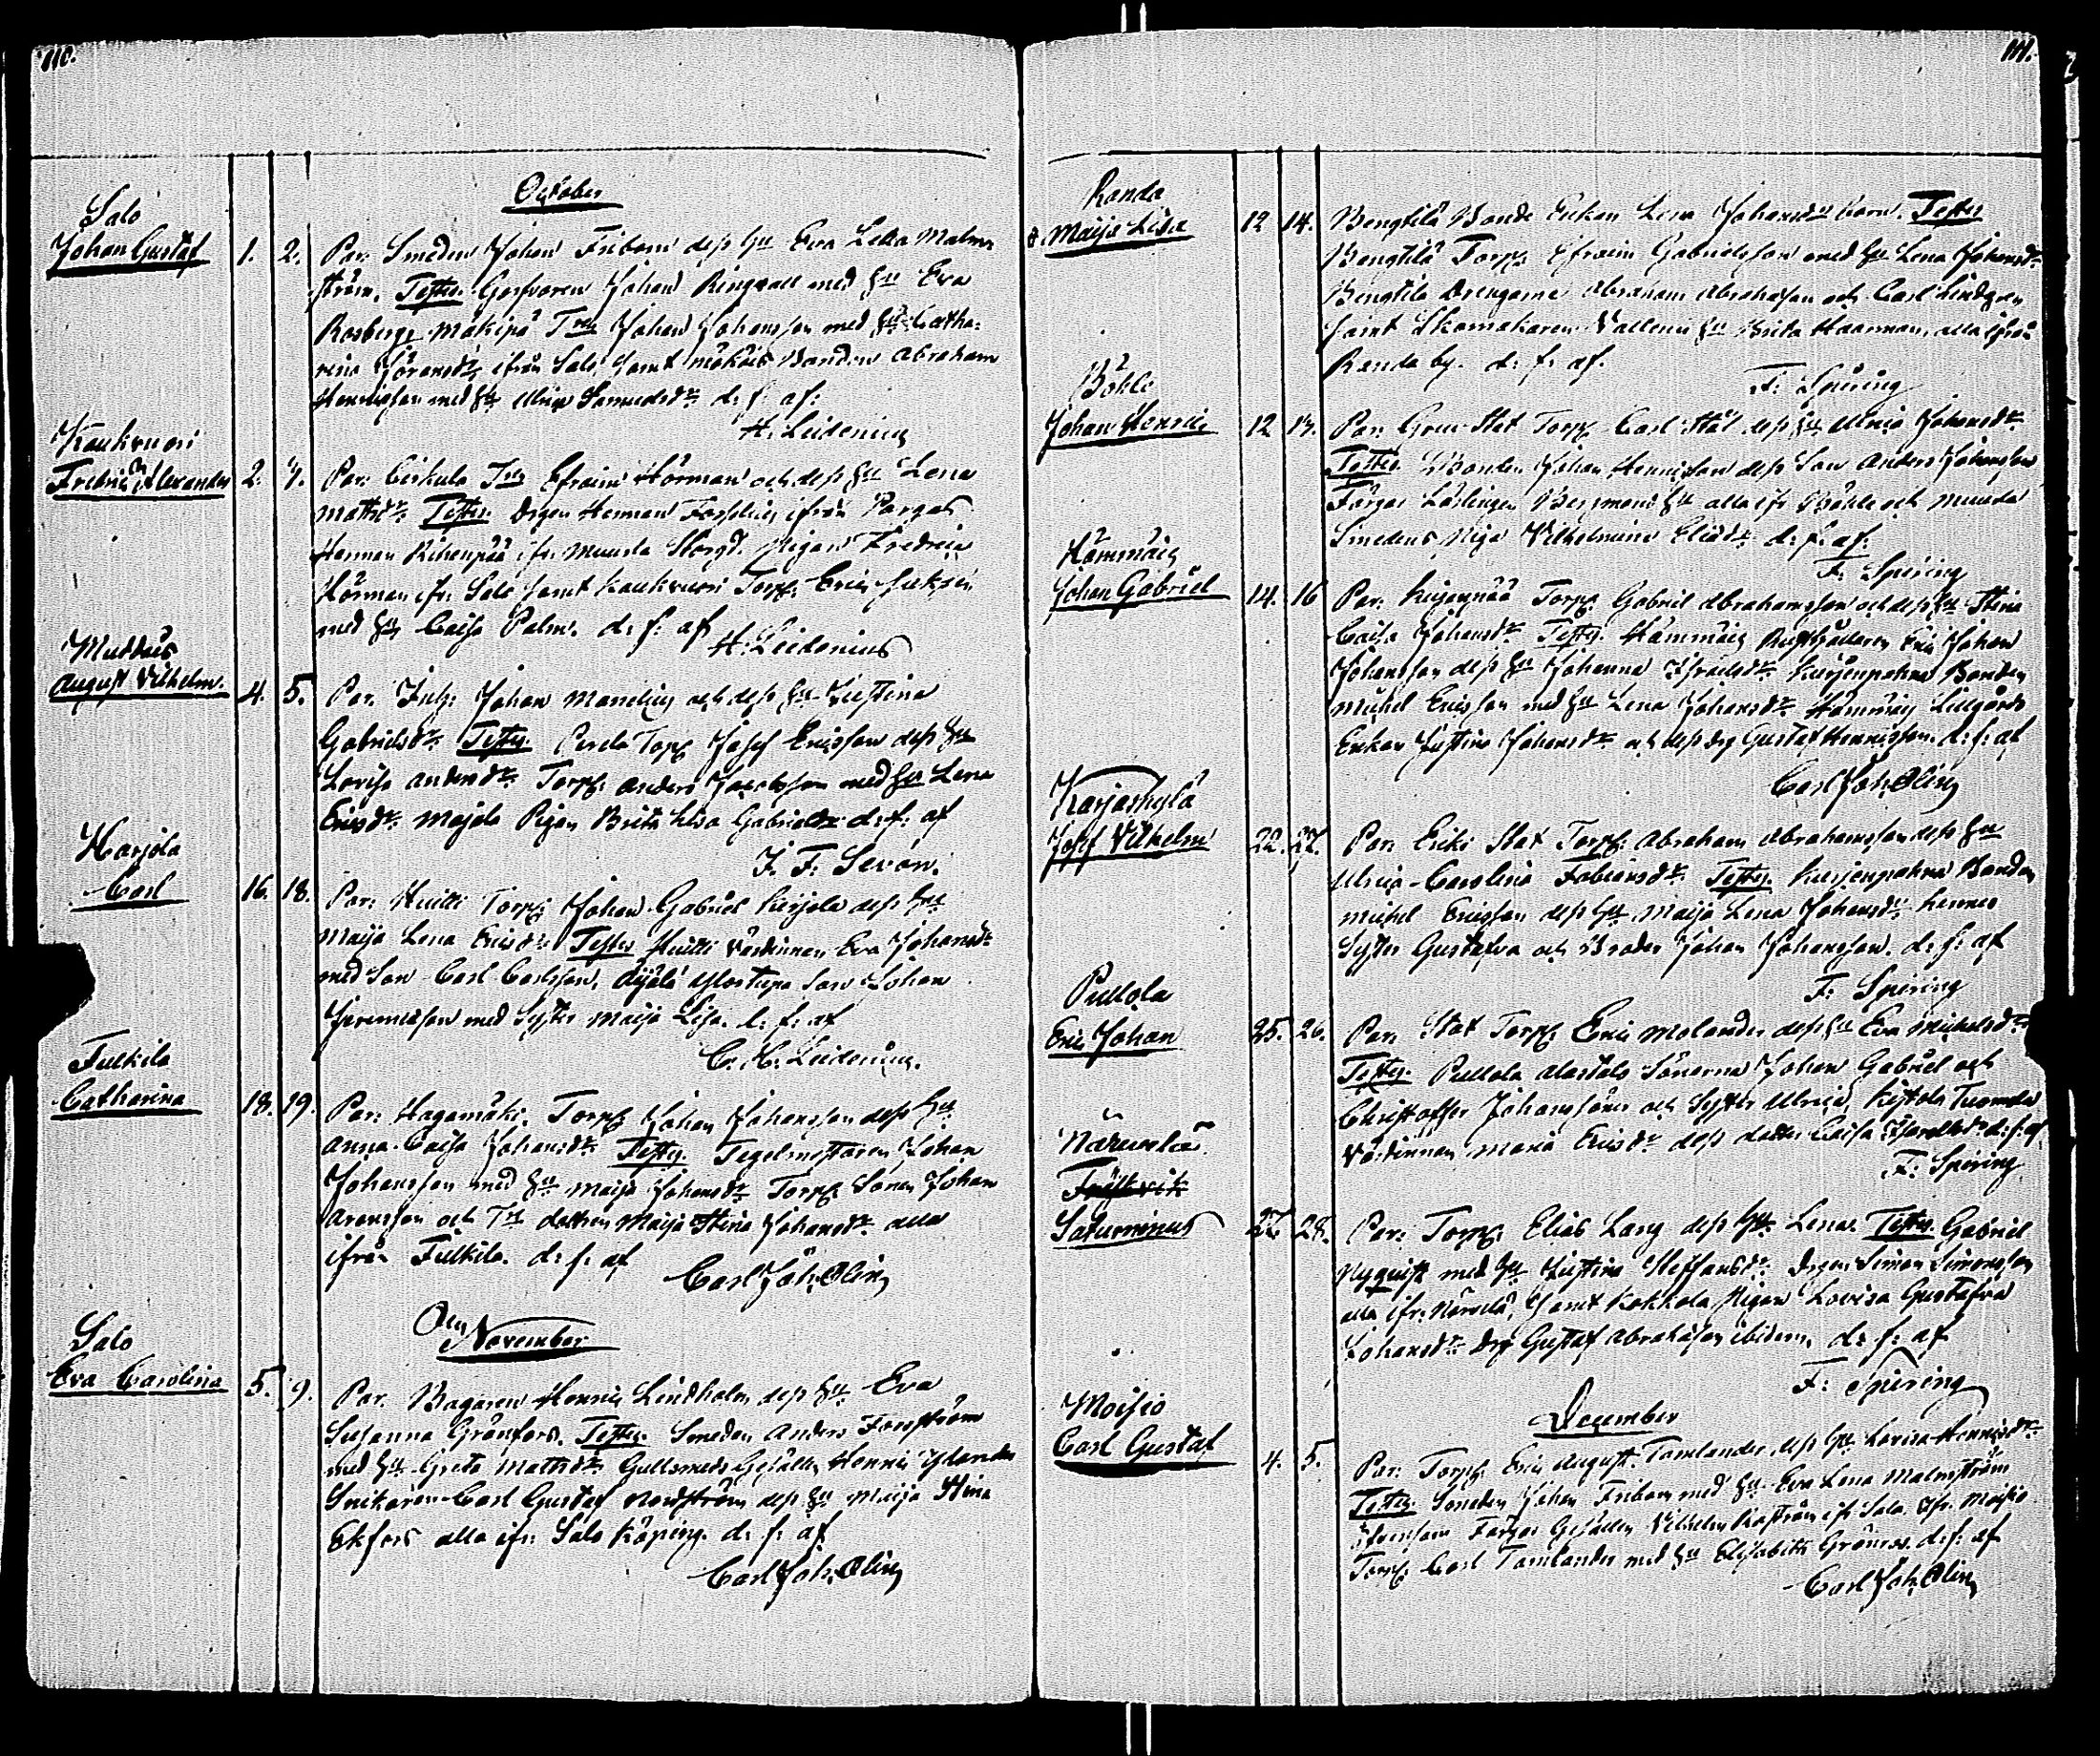 110.
October
Salo
Johan Gustaf 1. 2. Par. Smeden Johan Fribom dess Hu Eva Lena Malm
ström. Testes. Garfvaren Johan Ringvall med Hu Eva
Rosberg, Mäkipä Johan Johansson med Hu Catha:
rina Göransdr ifrån Salo, samt Bonden Abraham
Henricsson med Hu Ulrica Samuelsdr d: f: af:
H. Leidenius
Kaukvuori
Fredric Alexander 2. 4. Par. Efraim Hörman och dess Hu Lena
Mattsdr. Testes. Drgen Herman Forselius ifrån Pargas
Herman ifr. Muurla Pigan Fredrica
Hörman ifr. Salo samt Kaukvuori Torp. Eric
med Hu Caisa Palm. d: f: af
H. Leidenius
August Vilhelm. 4. 5. Par. Inh. Johan och dess Hu Justina
Gabrielsdr. Testes. Torp. Josef Ericsson dess Hu
Lovisa Andersdr. Torp. Anders Jacobsson med Hu Lena
Ericsdr. Pigan Brita Lisa Gabrielsdr d: f: af
J. F. Sevon.
Harjola
Carl 16. 18. Par. Huitti Torp. Johan Gabriel dess Hu
Maija Lena Ericsdr Testes Huitti Värdinnan Eva Johansdr
med Son Carl Carlsson, Son Johan
Jeremiasson med Syster Maija Lisa. d: f: af
C. H. Leidenius.
Fulkila
Catharina 18. 19. Par. Hagamäki Torp. Johan Johansson dess Hu
Anna Caisa Johansdr. Testes. Tegelmästaren Johan
Johansson med Hu Maija Johansdr Torp. Sonen Johan
Aronsson och dottren Maija Stina Johansdr alla
ifrån Fulkila. d: f: af
Carl Joh. Olin
November
Salo
Eva Carolina 5. 9. Par. Bagaren Henric Lindholm dess Hu Eva
Susanna Grönfors. Testes. Smeden Anders Forsström
med Hu Greta Mattsdr. Gullsmeds Gesällen Henric
Snikaren Carl Gustaf Nordström dess Hu Maija Stina
Ekfors alla ifr. Salo Köping. d: f: af
Carl Joh. Olin
111.
Randa
Maija Lisa 12 14. Bengtilä Bonde Enkan Lena Johansdr barn. Testes
Bengtilä Torp. Efraim Gabrielsson med Hu Lena Johansdr
Bengtilä Drengarne Abraham Abrahamsson och Carl Lindgren
samt Skomakaren Hu Brita alla ifrån
Randa by. d: f: af.
F. Spiring
Påhle
Johan Henric 12 14. Par. Torp. Carl Stål dess Hu Ulrica Johansdr.
Testes. Bonden Johan Henricsson dess Son Anders Johansson
Färgar Lärlingen Bergman Hu alla ifr. och
Smedens Piga Vilhelmina Eliædr. d: f: af:
F. Spiring
Hämmäis
Johan Gabriel 14. 16 Par. Torp. Gabriel Abrahamsson och dess Hu Stina
Caisa Johansdr Testes. Hämmäis Johan
Johansson dess Hu Johanna Israelsdr. Bonden
Michel Ericsson med Hu Lena Johansdr. Hämmäis
Enkan Justina Johansdr och dess drg Gustaf Henricsson. d: f: af
Carl Joh. Olin
Karjaskylä
Josef Vilhelm 22. 27. Par. Stat Torp. Abraham Abrahamsson dess Hu
Ulrica Carolina Fabiansdr. Testes. Bonden
Michel Ericsson dess Hu Maija Lena Johansdr. hennes
Syster Gustafva och Broder Johan Johansson. d: f: af
F. Spiring
Pullola
Eric Johan 25. 26. Par. Stat Torp. Eric Molander dess Hu Eva Michelsdr
Testes. Pullola Alastalo Sönerna Johan Gabriel och
Christoffer Johanssöner och Syster Ulrica,
Värdinnan Maria Ericsdr dess dotter Caisa d: f: af
F. Spiring
Saturninus 27. 28. Par. Torp. Elias Lang dess Hu Lena. Testes. Gabriel
Nyquist med Hu Justina Steffansdr. Drgen Simon Simonsson
alla ifr. samt Kokkola Pigan Lovisa Gustafva
Johansdr. Drg Gustaf Abrahamsson ibidem. d: f: af
F: Spiring
December
Moisio
Carl Gustaf 4. 5. Par. Torp. Eric August Tamlander dess Hu Lovisa Henricsdr
Testes. Smeden Johan Fribom med Hu Eva Lena Malmström
Färgar Gesällen Vilhelm ifr. Salo. Ifr. Moisio
Torp. Carl Tamlander med Hu Elisabeth Grönros. d: f: af
Carl Joh. Olin